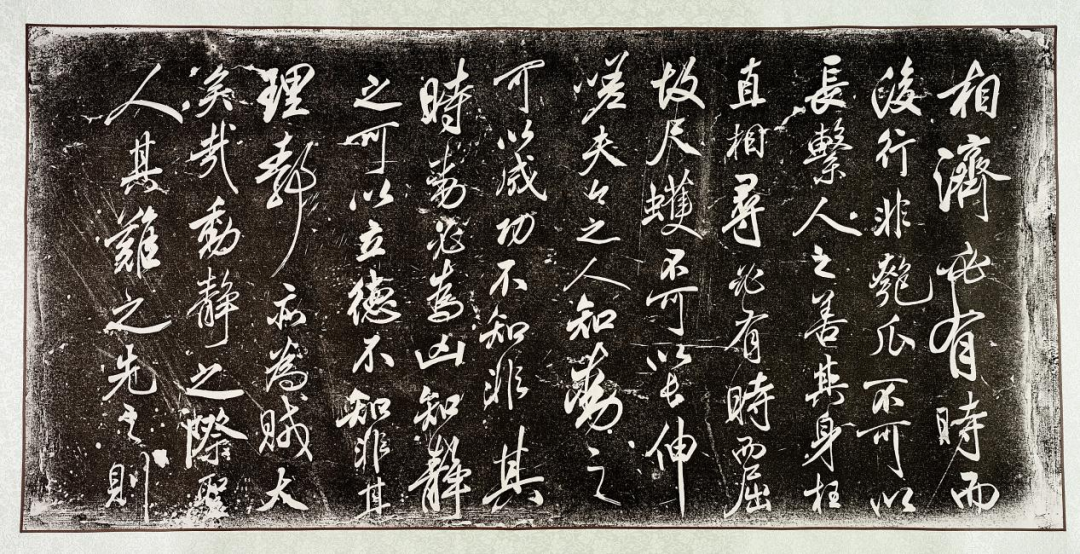 相濟必有時而
後行非匏瓜不可以
長繫人之善其身枉
直相尋必有時而屈
故尺蠖不可以長伸
嗟夫今之人知動之
可以成功不知非其
時動必為凶知靜
之可以立德不知非其
理靜亦為賊大
矣哉動靜之際聖
人其難之先之則